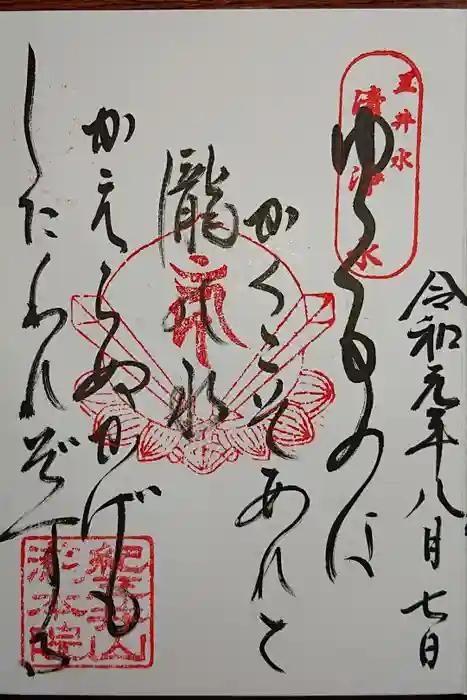 三井水
清浄水
令和元年八月七日
ゆくものは
かくこそあれと
瀧 水
かえらぬかげも
したわれぞする
紀三井山